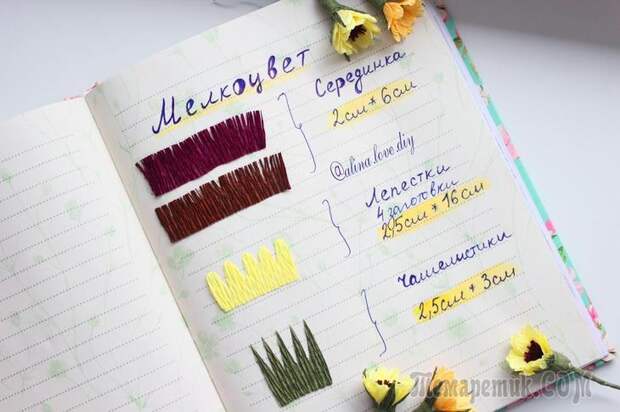 Мелкоцвет
Серединка
2см*6см
@alina.love.diy
Лепестки
4 заготовки
2,5см*16см
Чашелистики
2,5см*3см
Темаретик.COM